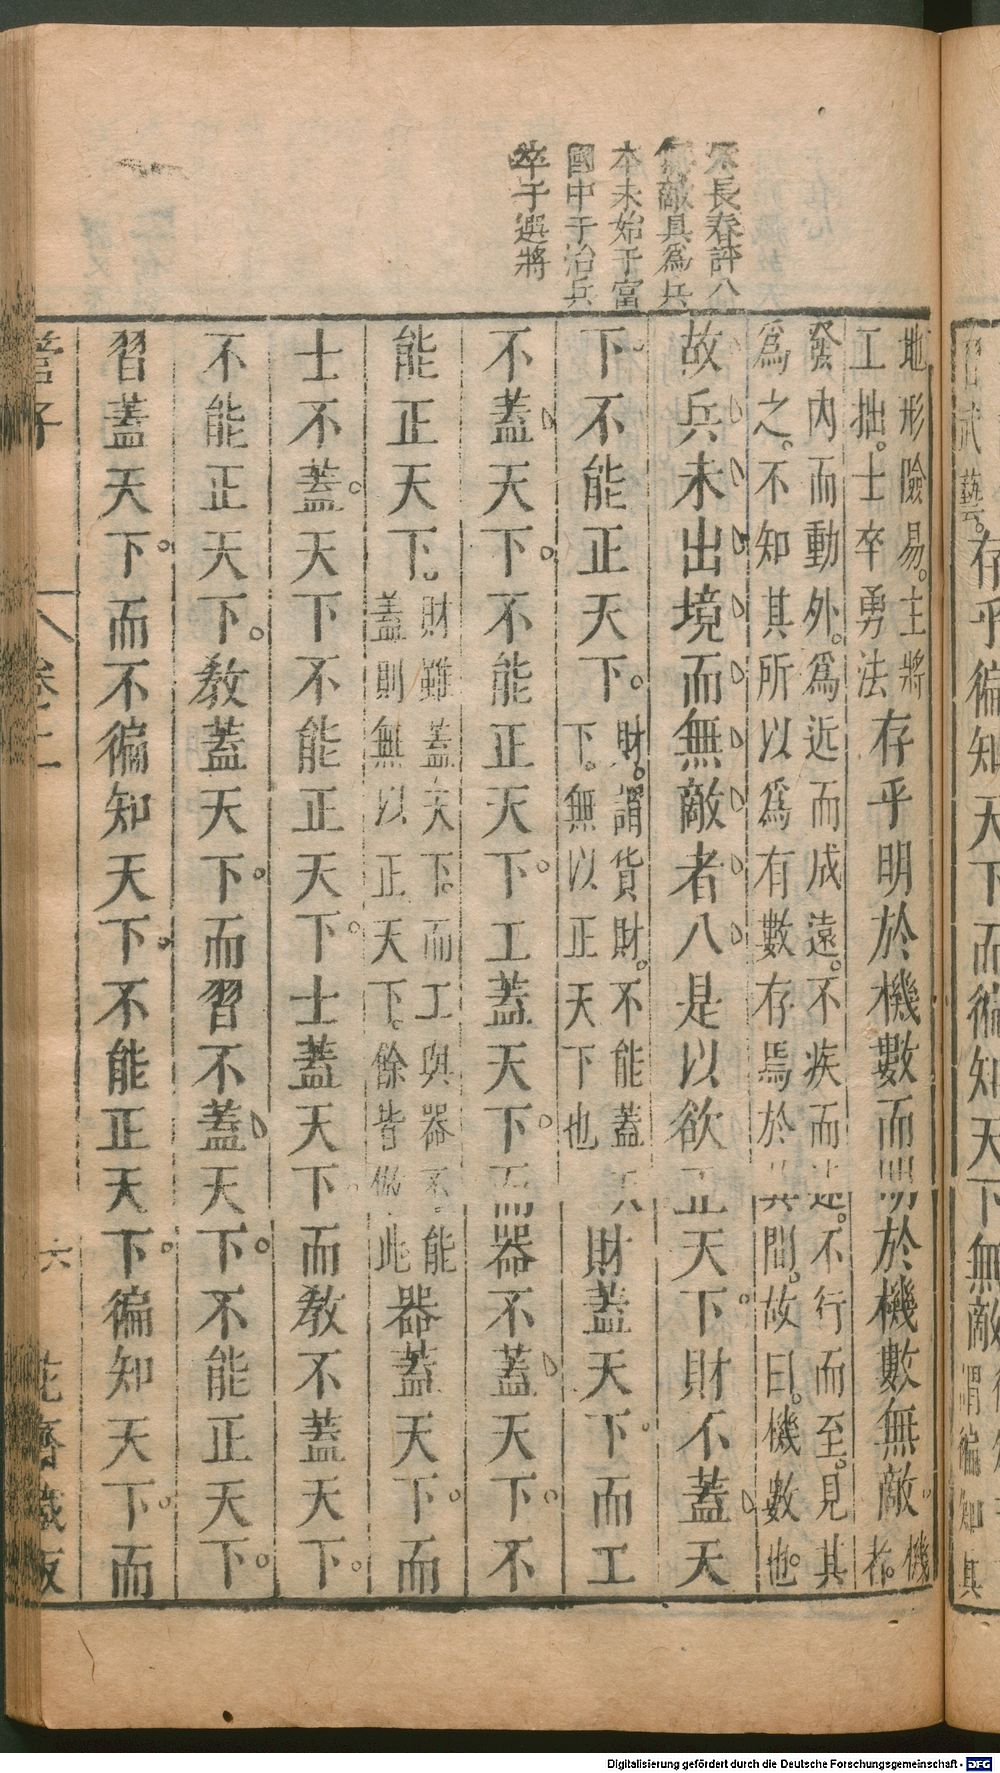 習武藝。存乎徧知天下而徧知天下無敵謂徧知其
朱長春評八
無敵具爲兵
本未始于富
國中于治兵
卒于選將
地形險易。主將
工拙。士卒勇法
存乎明於機數而明於機數無敵。
機
者。
發內而動外。爲近而成遠。不疾而速。不行而至。見其
爲之。不知其所以爲有數存焉於其間。故曰。機數也。
故兵未出境而無敵者八是以欲正天下。財不蓋天
下不能正天下。
財。謂貨財。不能蓋天
下。無以正天下也
財蓋天下。而工
不蓋天下。不能正天下。工蓋天下。而器不蓋天下。不
能正天下。
財雖蓋天下。而工與器不能
蓋則無以正天下。餘皆倣此
器蓋天下。而
士不蓋。天下不能正天下。士蓋天下。而教不蓋天下。
不能正天下。教蓋天下。而習不蓋天下。不能正天下。
習蓋天下。而不徧知天下。不能正天下。徧知天下。而
管子
卷二
六
花齋藏板
Digitalisierung gefördert durch die Deutsche Forschungsgemeinschaft - DFG